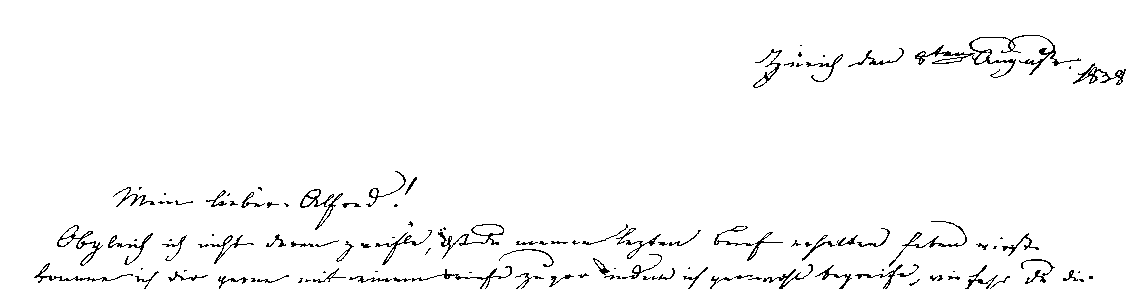 Zürich den 8ten August. 1838
Mein lieber Alfred!
Obgleich ich nicht daran zweifle, daß du meinen lezten Brief erhalten haben wirst
komme ich dir gerne mit einem Briefe zuvor indem ich gar wohl begreife, wie sehr du die